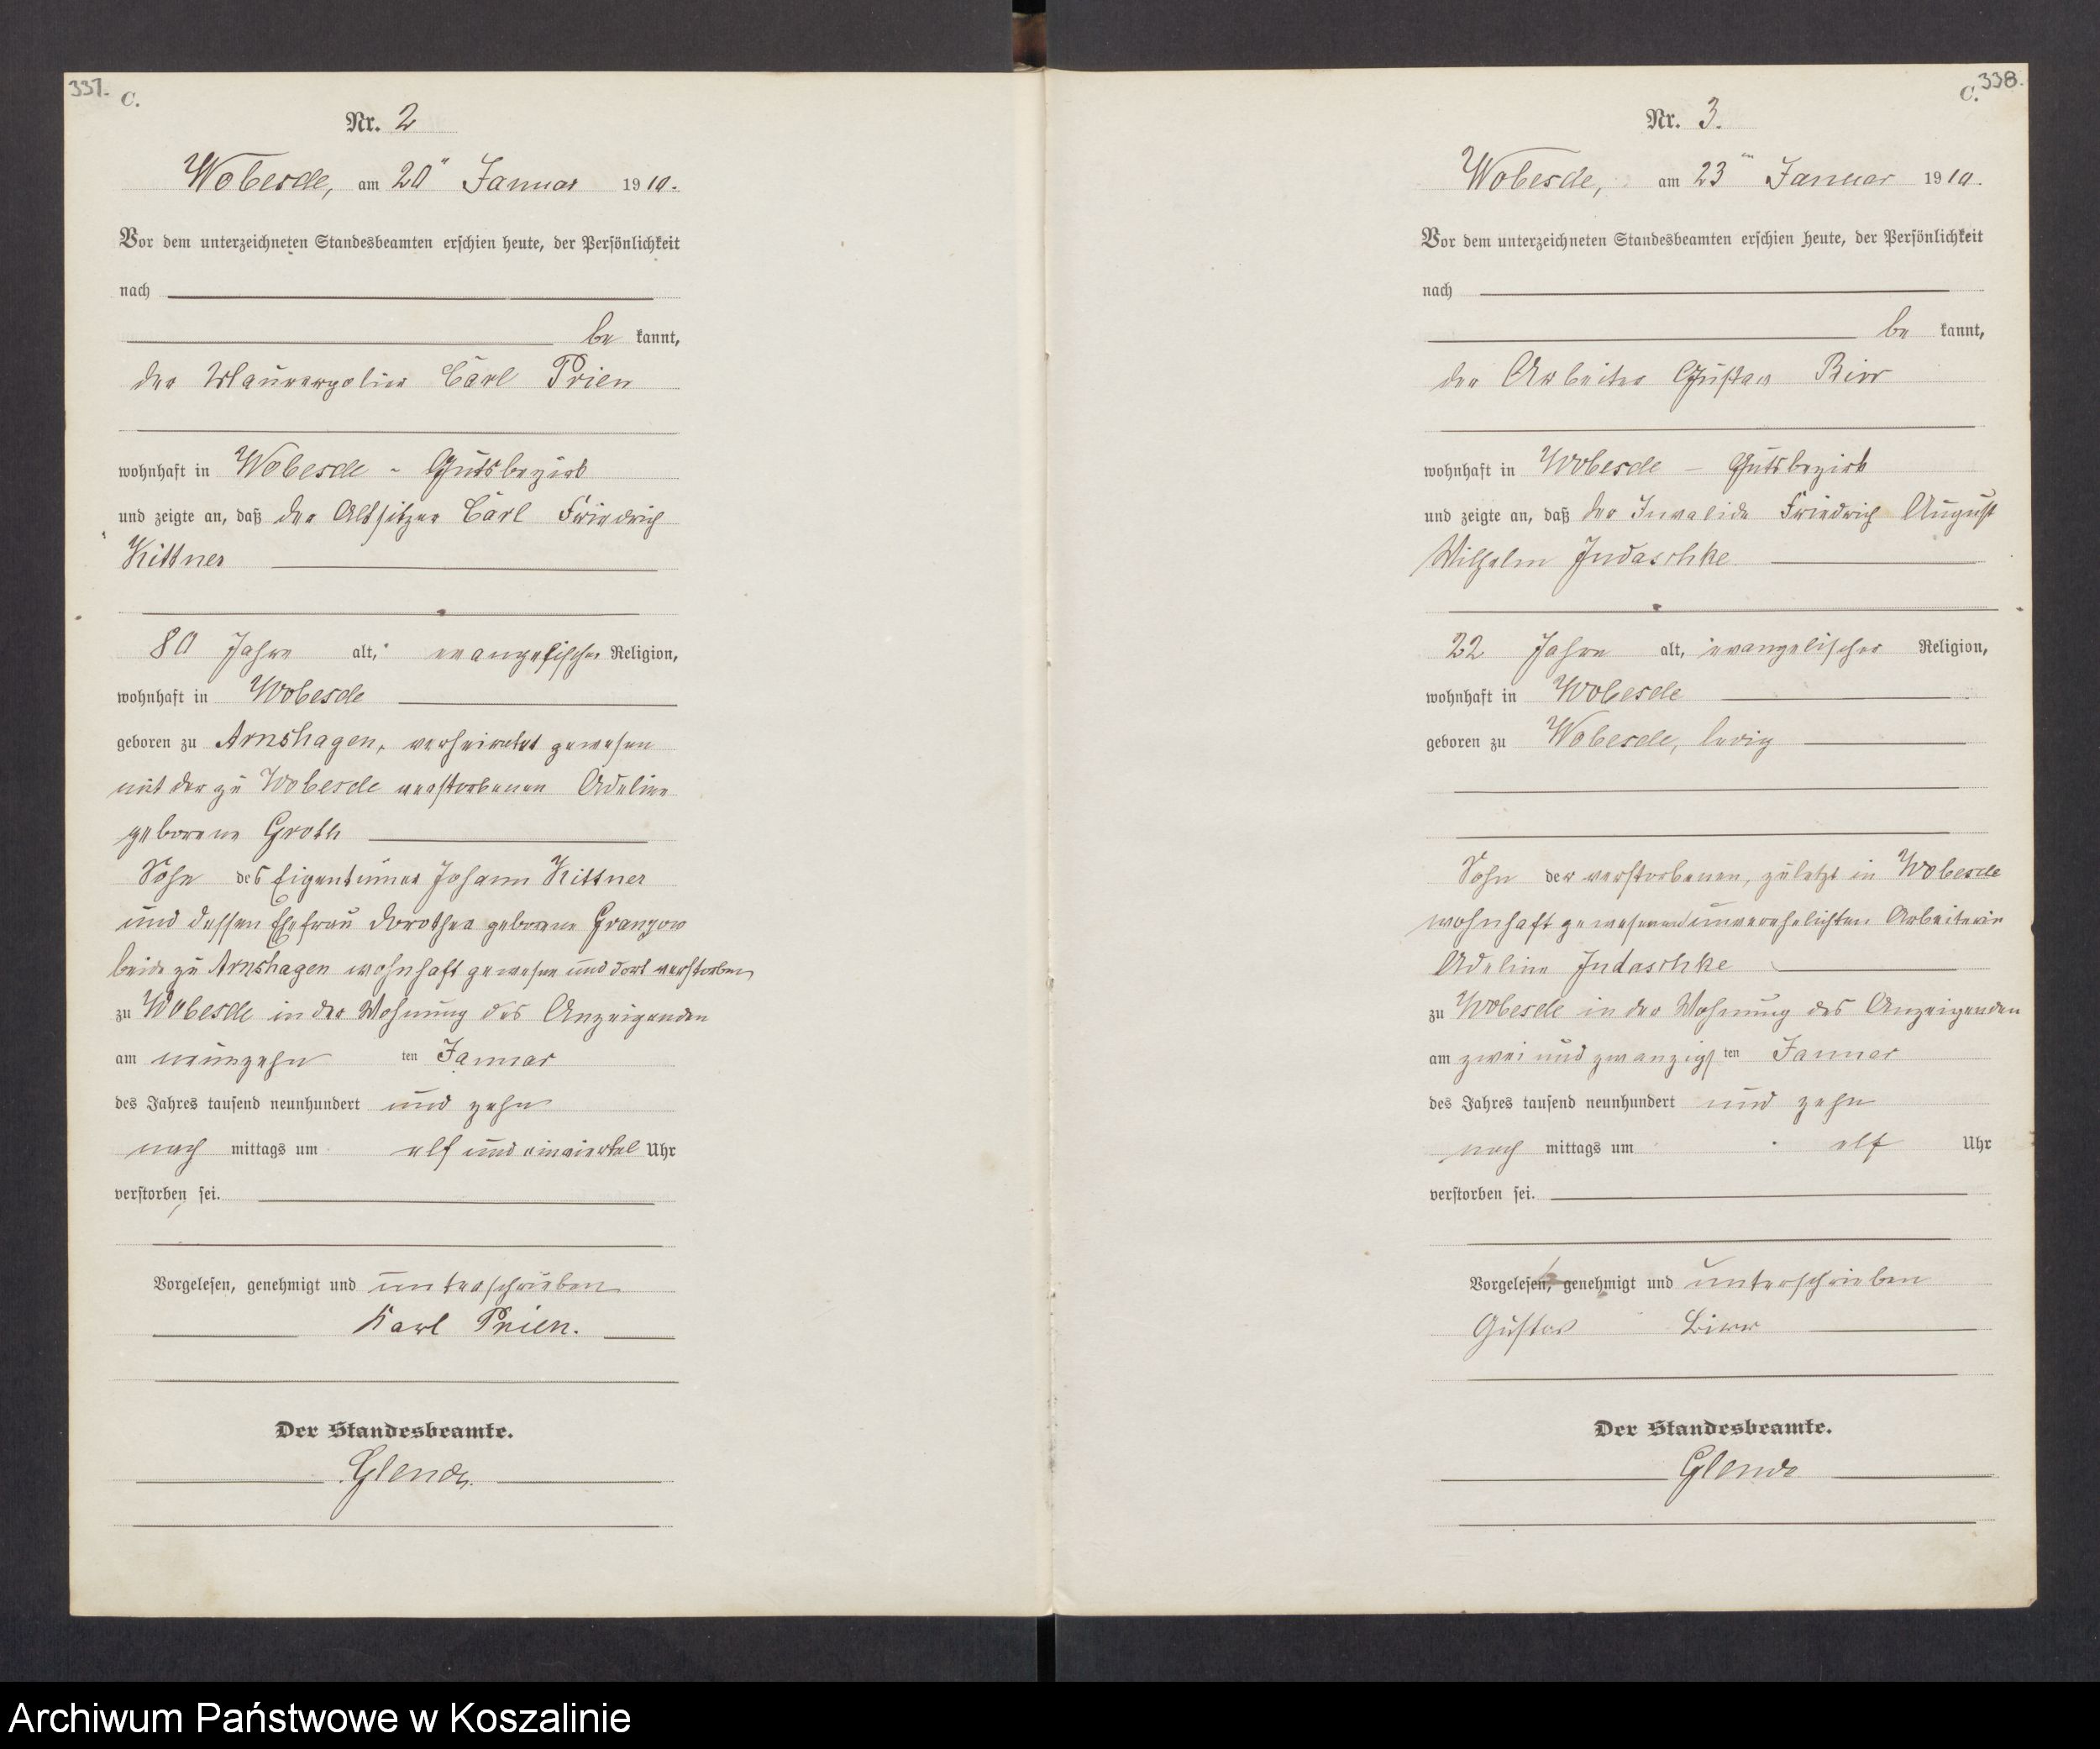 337.
C.
Nr. 2
Wobesde, am 20ten Januar 1910.
Vor dem unterzeichneten Standesbeamten erschien heute, der Persönlichkeit
nach
be kannt,
der Maurerpolier Carl Prien
wohnhaft in Wobesde - Gutsbezirk
und zeigte an, daß der Altsitzer Carl Friedrich
Kittner
80 Jahre alt, evangelischer Religion,
wohnhaft in Wobesde
geboren zu Arnshagen, verheiratet gewesen
mit der zu Wobesde verstorbenen Adeline
geborene Groth
Sohn des Eigentümer Johann Kittner
und dessen Ehefrau Dorothea geborene Granzow
beide zu Arnshagen wohnhaft gewesen und dort verstorben
zu Wobesde in der Wohnung des Anzeigenden
am neunzehn ten Januar
des Jahres tausend neunhundert und zehn
nach mittags um elf und einviertel Uhr
verstorben sei.
Vorgelesen, genehmigt und unterschrieben
Karl Prien.
Der Standesbeamte.
338.
C.
Nr. 3.
Wobesde, am 23ten Januar 1910.
Vor dem unterzeichneten Standesbeamten erschien heute, der Persönlichkeit
nach
be kannt,
der Arbeiter Gustav Birr
wohnhaft in Wobesde - Gutsbezirk
und zeigte an, daß der Invalide Friedrich August
Wilhelm Judaschke
22 Jahre alt, evangelischer Religion,
wohnhaft in Wobesde
geboren zu Wobesde, ledig
Sohn der verstorbenen, zuletzt in Wobesde
wohnhaft gewesenen unverehelichten Arbeiterin
Adeline Judaschke
zu Wobesde in der Wohnung des Anzeigenden
am zwei und zwanzigs ten Januar
des Jahres tausend neunhundert und zehn
nach mittags um elf Uhr
verstorben sei.
Vorgelesen, genehmigt und unterschrieben
Gustav Birr
Der Standesbeamte.
Archiwum Państwowe w Koszalinie